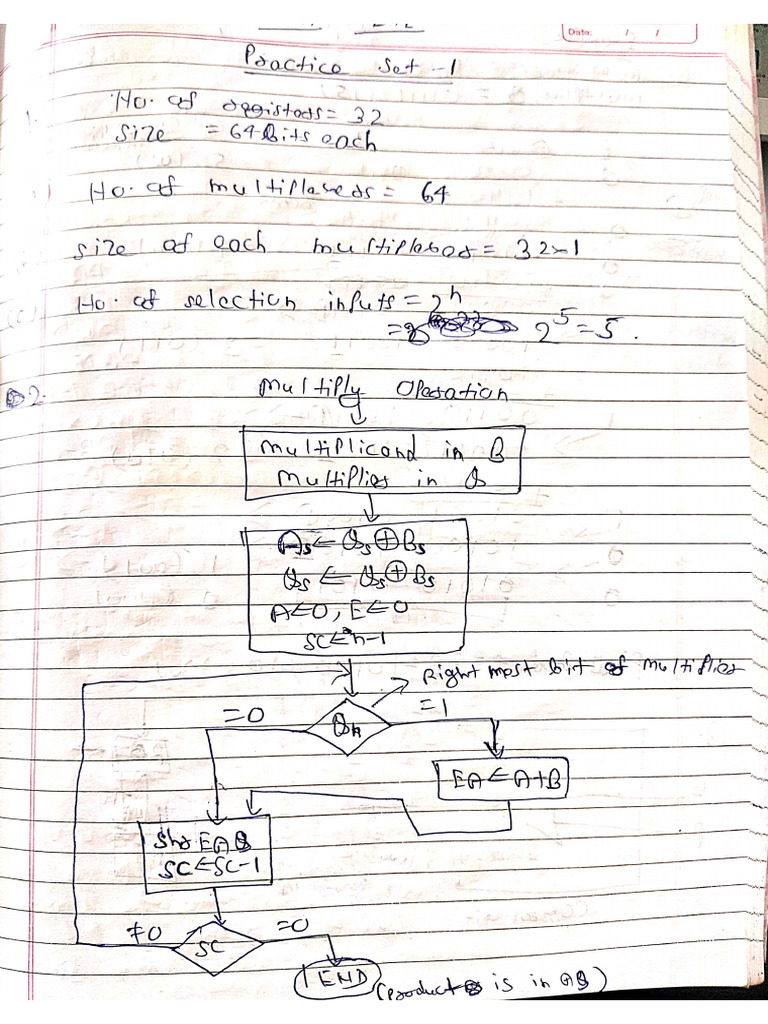 Date: / /
Practice Set-1
1.
No. of registers = 32
size = 64 bits each
No. of multiplexers = 64
size of each multiplexer = 32x1
No. of selection inputs = 2^n
= 2^5 = 5.
2.
Multiply Operation
Multiplicand in B
Multiplier in Q
As ← Qs ⊕ Bs
Qs ← Qs ⊕ Bs
A ← 0, E ← 0
SC ← n-1
Right most bit of multiplier
=0
Qn
=1
EA ← A+B
Shr EAQ
SC ← SC-1
≠0
SC
=0
END
(product is in AQ)